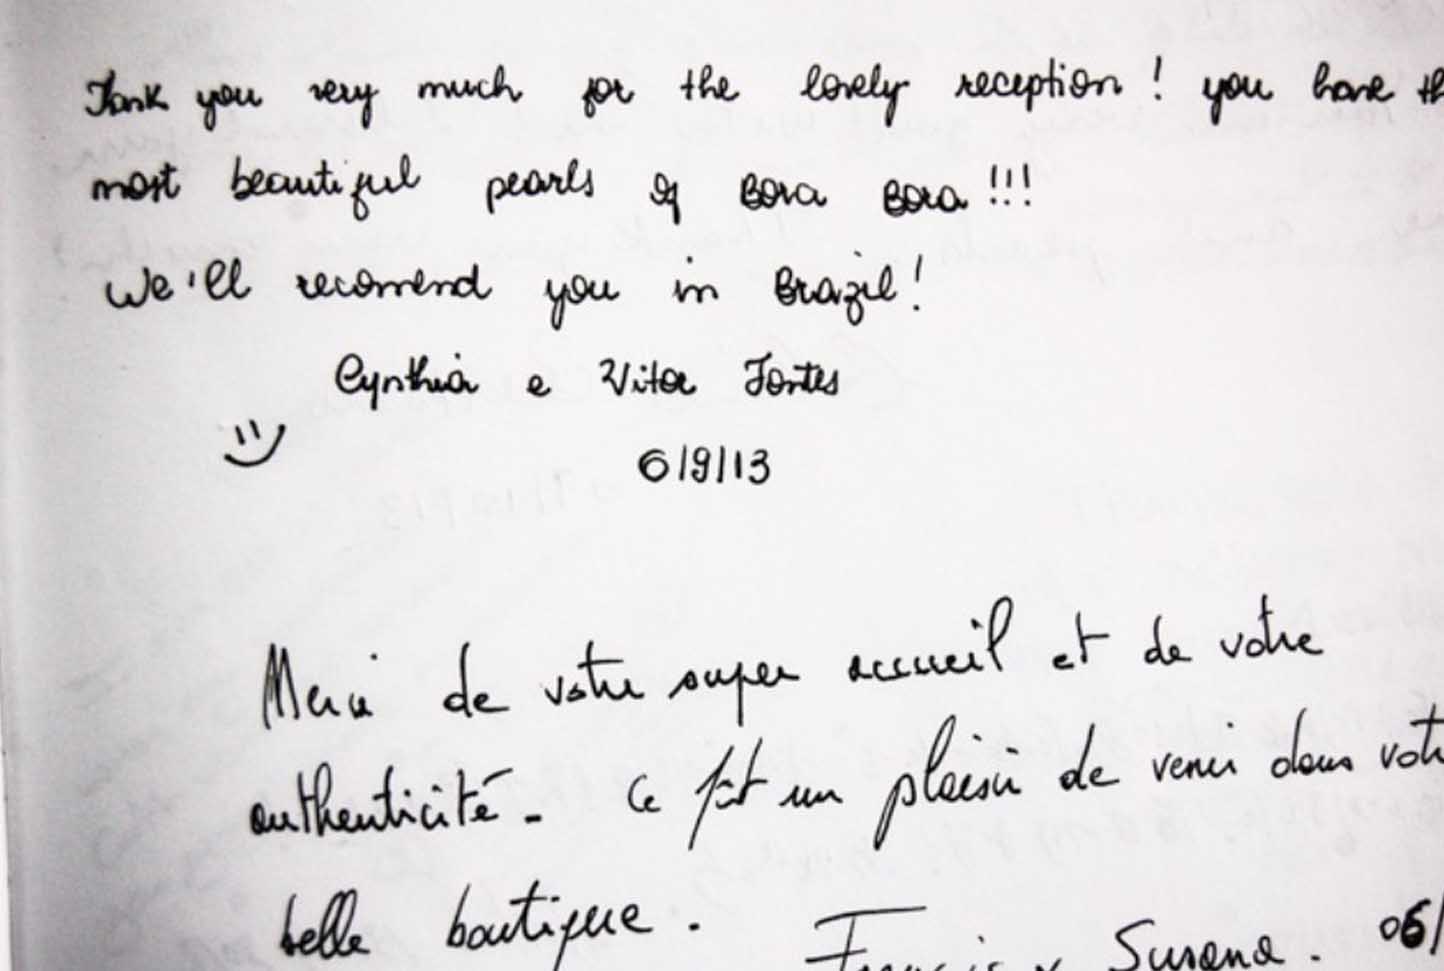 Tank you very much for the lovely reception! you have th
most beautiful pearls of Bora Bora!!!
We'll recomend you in Brazil!
Cynthia e Vitor Fontes
6/9/13
Merci de votre super accueil et de votre
authenticité - Ce fût un plaisir de venir dans votr
belle boutique.
Francis x Susana. 06/